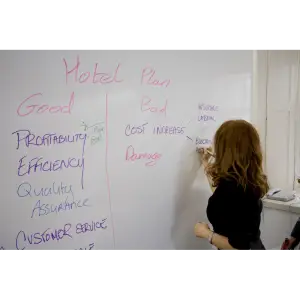 Hotel Plan
Good
Bad
PROFITABILITY
EFFICIENCY
QUALITY
ASSURANCE
CUSTOMER SERVICE
COST INCREASE
Damage